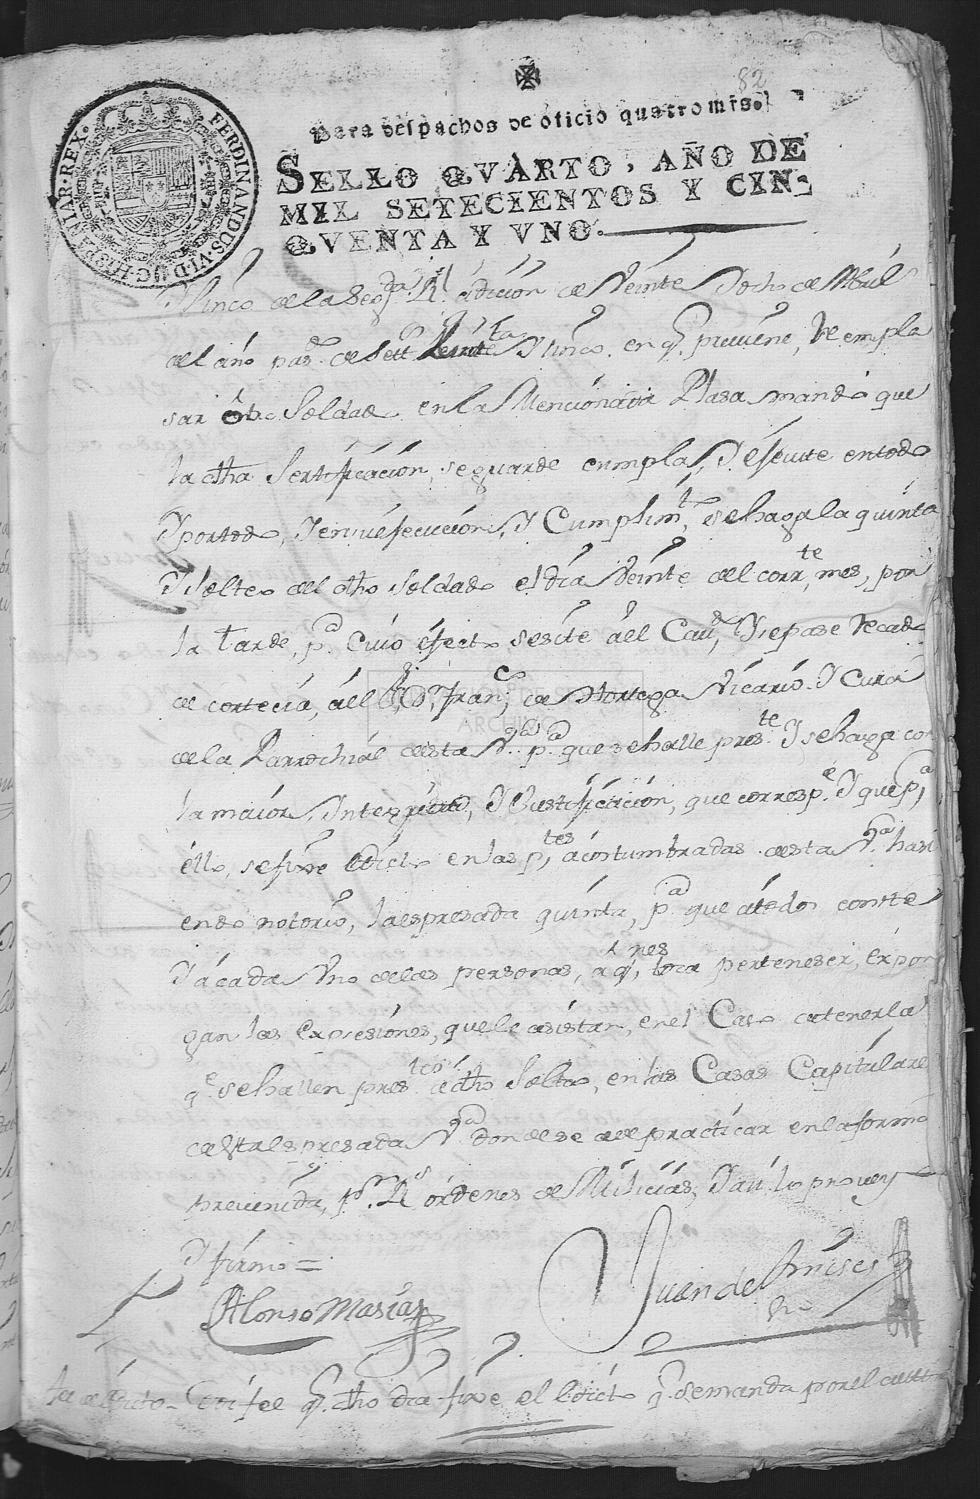 82
Para despachos de oficio quatro mrs.
SELLO QVARTO, AÑO DE
MIL SETECIENTOS Y CIN-
QVENTA Y VNO.
FERDINANDUS·VI·D·G·HISPANIAR·REX·
Y sinco de la Seg.da Rl adicion de Veinte Y ocho de Abril
del año pas.do de Sett.s Y sinco. en q.e previene, Reempla
sar otro Soldado en la Mencionada Plasa mando que
la dha Sertificacion, se guarde cumpla, Y ésecute entodo
Y portodo, Y ensuesecucion, Y Cumplim.to, se haga la quinta
Y Solteo del dho Soldado el dia Veinte del corr.te, mes, por
la tarde, p.a Cuio éfecto sesite ael Cav.do, Y sepase Recado
de cortecia, áel S.r D. Fran.co de Hortega Vicario Y Cura
de la Parrochial desta V.a p.a que se halle pres.te Y se haga co
la maior Y Justificacion, que corresp.e Y que p.a
éllo, sefixe Edicto en las p.tes acostumbradas desta V.a hasi
endo notorio, la espresada quinta, p.a que átodos conste
Y ácada Vno de las personas, aq.nes toca perteneser, expon
gan las Expresiónes, que le asistan, enel Caso detenerla
q.e se hallen pres.tes adho Solteo, en las Casas Capitulare
destalespresada V.a donde se á de practicar en la forma
prevenida, p.r R.s órdenes de Milicias, Y asi lo proveyo
Y firmo =
Alonso Masias
Juan de
fee q.e dho dia fixe el Edicto q.e semanda porel
ARCHIVO